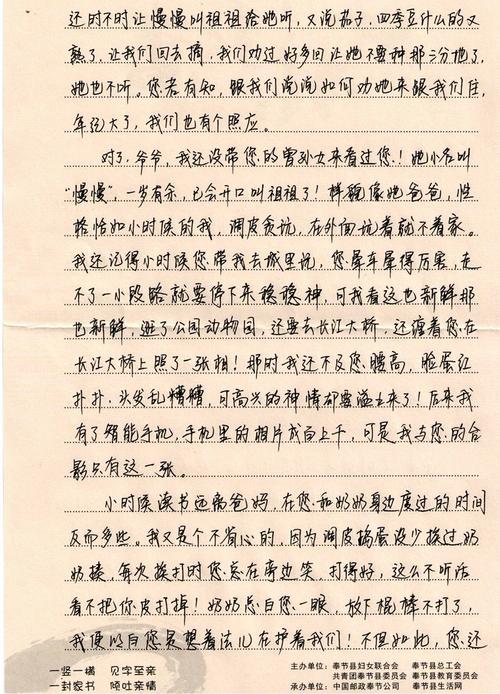 还时不时让慢慢叫祖祖给她听，又说茄子、四季豆什么的又
熟了，让我们回去摘，我们劝过好多回让她不要种那二分地了，
她也不听。您若有知，跟我们说说如何劝她来跟我们住，
年纪大了，我们也有个照应。
对了，爷爷，我还没带您的曾孙女来看过您！她小名叫
“慢慢”，一岁有余，已会开口叫祖祖了！样貌像她爸爸，性
格恰如小时候的我，调皮贪玩，在外面玩着就不着家。
我还记得小时候您带我去城里玩，您晕车晕得厉害，走
不了一小段路就要停下来稳稳神，可我看这也新鲜那
也新鲜，逛了公园动物园，还要去长江大桥，还缠着您在
长江大桥上照了一张相！那时我还不及您腰高，脸蛋红
扑扑，头发乱糟糟，可高兴的神情都要溢出来了！后来我
有了智能手机，手机里的相片成百上千，可是我与您的合
影只有这一张。
小时候读书远离爸妈，在您和奶奶身边度过的时间
反而多些。我又是个不省心的，因为调皮捣蛋没少挨过奶
奶揍，每次挨打时您总在旁边笑，打得好，这么不听话
看不把你皮打掉！奶奶总白您一眼，放下棍棒不打了，
我便明白您是想着法儿在护着我们！不但如此，您还
一竖一横 见字至亲
一封家书 倾吐亲情
主办单位：奉节县妇女联合会 奉节县总工会
共青团奉节县委员会 奉节县教育委员会
承办单位：中国邮政奉节公司 奉节县生活网